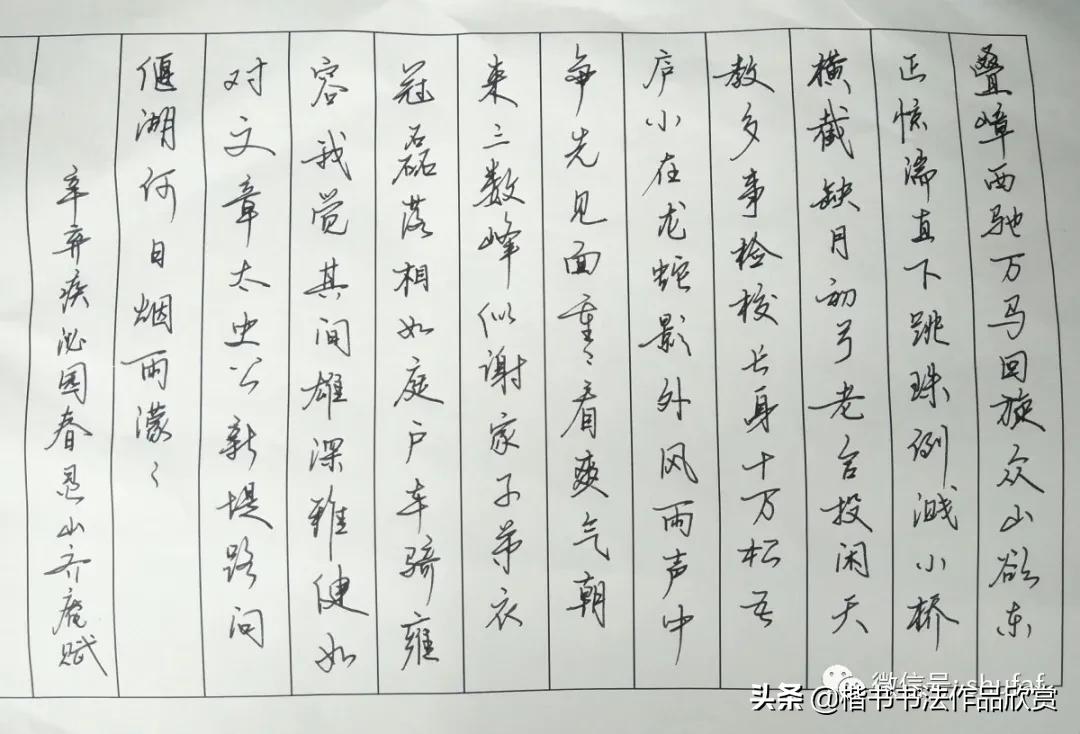 叠嶂西驰万马回旋众山欲东
正惊湍直下跳珠倒溅小桥
横截缺月初弓老合投闲天
教多事检校长身十万松吾
庐小在龙蛇影外风雨声中
争先见面重〻看爽气朝
来三数峰似谢家子弟衣
冠磊落相如庭户车骑雍
容我觉其间雄深雅健如
对文章太史公新堤路问
偃湖何日烟雨濛〻
辛弃疾沁园春灵山齐庵赋
微信号: shufaf
头条 @楷书书法作品欣赏